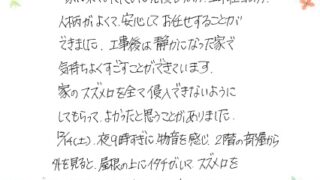 人柄がよくて、安心してお任せすることが
できました。工事後は静かになった家で
気持ちよくすごすことができています。
家のスズメロを全て侵入できないように
してもらって、よかったと思うことがありました。
12/14(土)、夜9時すぎに物音を感じ、2階の部屋から
外を見ると、屋根の上にイタチがいて、スズメロを